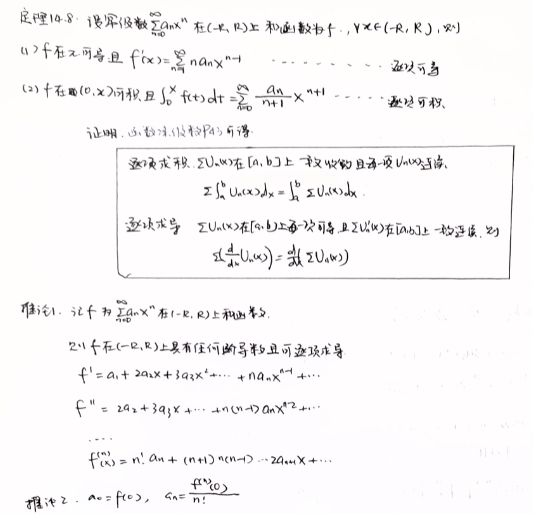 定理14.8. 设幂级数 $\sum_{n=0}^{\infty} a_n x^n$ 在(-R, R)上和函数为f., ∀x∈(-R, R), 则
(1) f在x可导且 $f'(x)=\sum_{n=1}^{\infty} n a_n x^{n-1}$ ········· 逐项可导
(2) f在(0,x)可积且 $\int_0^x f(t)dt=\sum_{n=0}^{\infty} \frac{a_n}{n+1} x^{n+1}$ ········ 逐项可积.
证明. 函数项级数P43可得.
逐项求积. ΣUn(x)在[a,b]上一致收敛且每一项Un(x)连续.
$\Sigma\int_a^b U_n(x)dx=\int_a^b \Sigma U_n(x)dx.$
逐项求导 ΣUn(x)在[a,b]上每一项可导, 且ΣUn'(x)在[a,b]上一致连续, 则
$\Sigma(\frac{d}{dx}U_n(x))=\frac{d}{dx}(\Sigma U_n(x))$
推论1. 记f为 $\sum_{n=0}^{\infty} a_n x^n$ 在(-R, R)上和函数.
则f在(-R,R)上具有任何阶导数且可逐项求导
$f'=a_1+2a_2x+3a_3x^2+\cdots+na_nx^{n-1}+\cdots$
$f''=2a_2+3a_3x+\cdots+n(n-1)a_nx^{n-2}+\cdots$
....
$f^{(n)}(x)=n!a_n+(n+1)n(n-1)\cdots2a_{n+1}x+\cdots$
推论2. $a_0=f(0)$, $a_n=\frac{f^{(n)}(0)}{n!}$